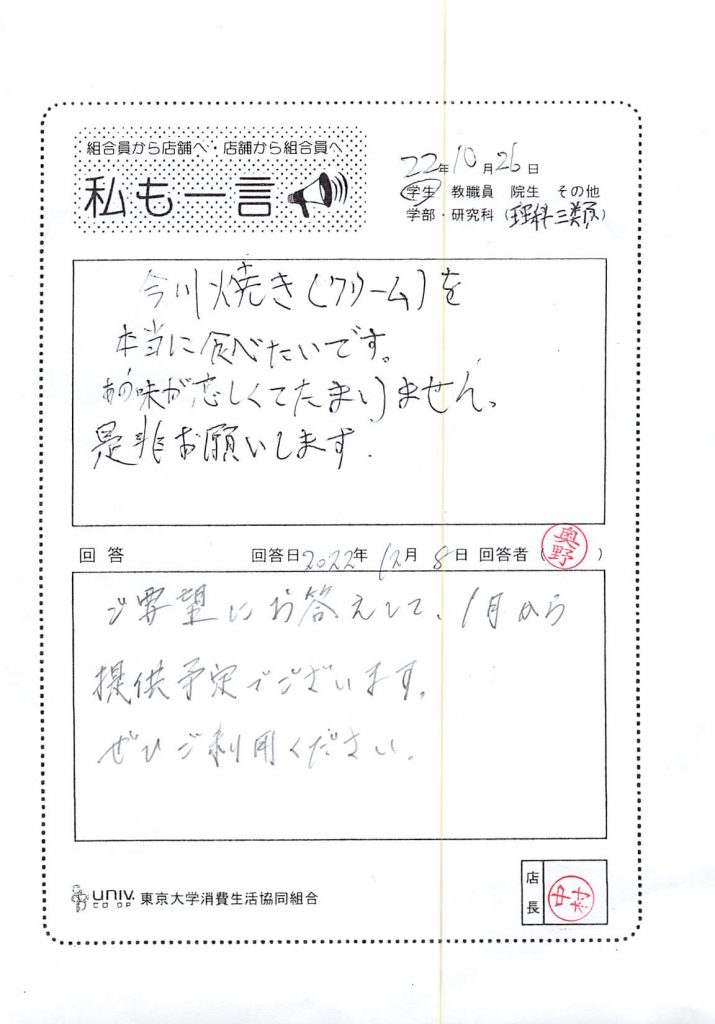 組合員から店舗へ・店舗から組合員へ
私も一言
22年10月26日
学生 教職員 院生 その他
学部・研究科(理科三類)
今川焼き(クリーム)を
本当に食べたいです。
あの味が恋しくてたまりません。
是非お願いします.
回答 回答日2022年12月8日 回答者(奥野)
ご要望にお答えして、1月から
提供予定でございます。
ぜひご利用ください。
店長 中村
univ. CO-OP 東京大学消費生活協同組合